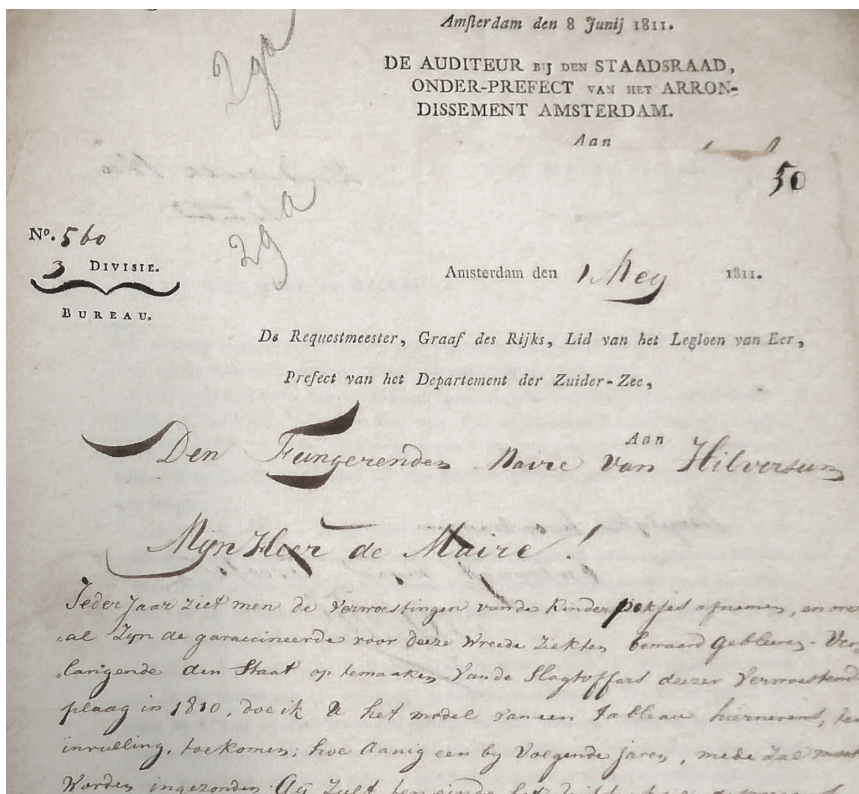 Amsterdam den 8 Junij 1811.
DE AUDITEUR BIJ DEN STAADSRAAD,
ONDER-PREFECT VAN HET ARRON-
DISSEMENT AMSTERDAM.
Aan
50
29a
29a
No. 560
3 DIVISIE.
BUREAU.
Amsterdam den 1 Mey 1811.
De Requestmeester, Graaf des Rijks, Lid van het Legioen van Eer,
Prefect van het Departement der Zuider-Zee,
Aan
Den Fungerenden Maire van Hilversum
Mijn Heer de Maire!
Ieder Jaar ziet men de verwoestingen van de Kinderpokjes afnemen, en over
al Zyn de gevaccineerde voor deeze Wreede Ziekten bewaard gebleven. Ver
langende den Staat op temaaken van de Slagtoffers deezer Verwoestende
plaag in 1810, doe ik U het model van een Tableau hiernevens, ter
invulling, toekomen; hoedanig een by Volgende jaren, mede zal moeten
Worden ingezonden. Gij Zult ten einde het